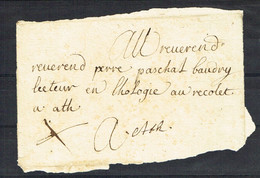 All reverend
reverend perre paschal baudry
lecteur en thologie au recolet
a ath
A Ath.